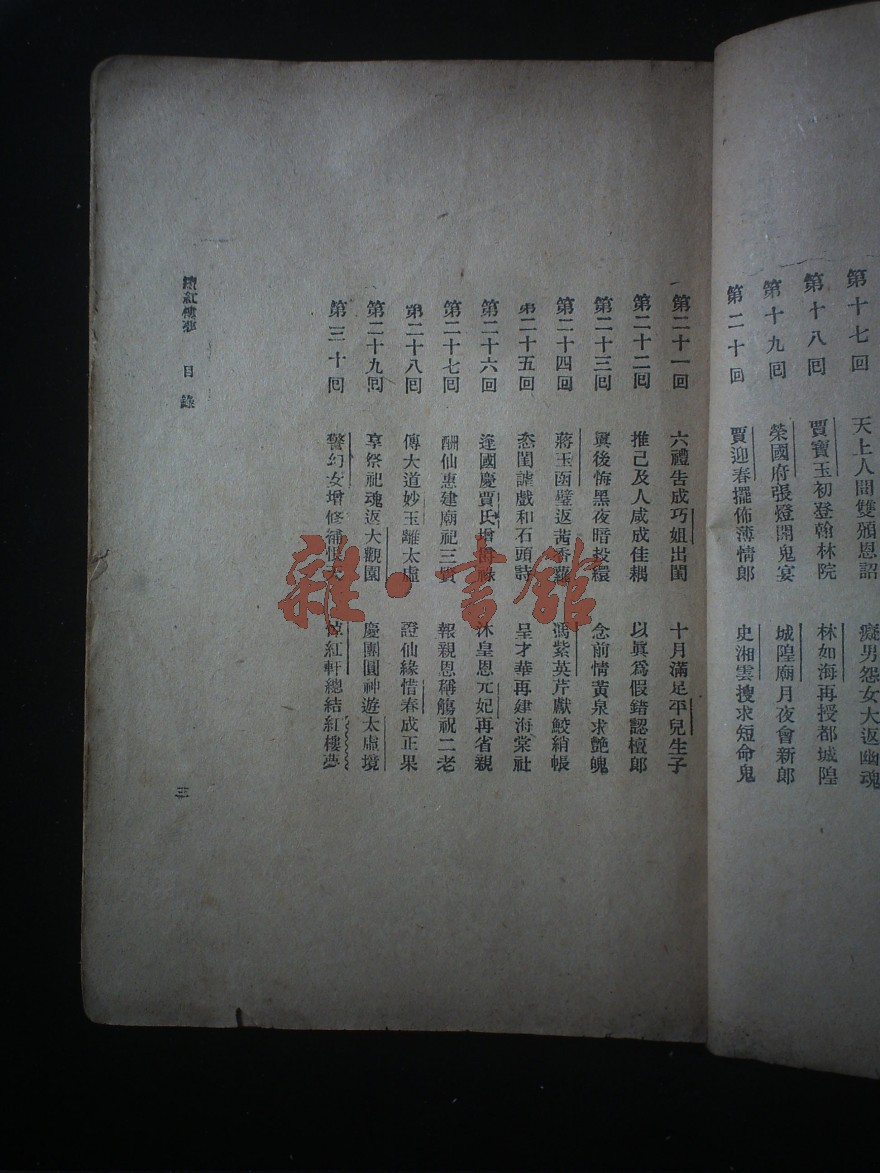 第十七回 天上人間雙頒恩詔 癡男怨女大返幽魂
第十八回 賈寶玉初登翰林院 林如海再授都城隍
第十九回 榮國府張燈開鬼宴 城隍廟月夜會新郎
第二十回 賈迎春擺佈薄情郎 史湘雲搜求短命鬼
第二十一回 六禮告成巧姐出閨 十月滿足平兒生子
第二十二回 推己及人咸成佳耦 以眞爲假錯認檀郎
第二十三回 眞後悔黑夜暗投繯 念前情黃泉求艷魄
第二十四回 蔣玉函璧返茜香羅 馮紫英芹獻鮫綃帳
第二十五回 恣閨謔戲和石頭詩 呈才華再建海棠社
第二十六回 逢國慶賈氏增祿 沐皇恩元妃再省親
第二十七回 酬仙惠建廟祀三 報親恩稱觴祝二老
第二十八回 傳大道妙玉離太虛 證仙緣惜春成正果
第二十九回 享祭祀魂返大觀園 慶團圓神遊太虛境
第三十回 警幻女增修補恨天 悼紅軒總結紅樓夢
續紅樓夢 目錄
三
雜·書館